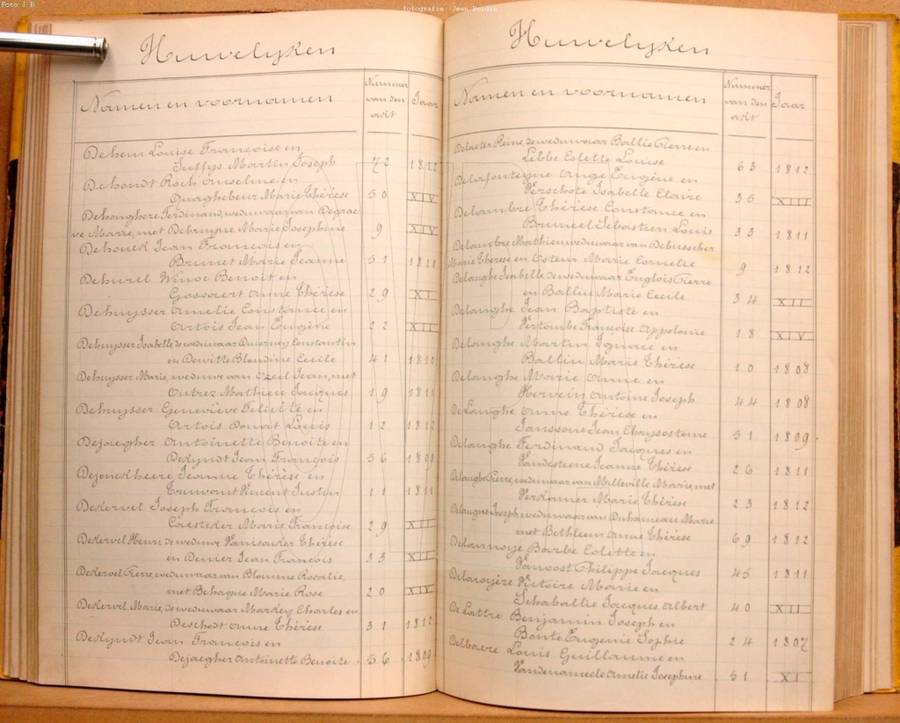 Foto: J.B
fotografie: Jean
Huwelyken
Namen en voornamen
Nummer van den akt
Jaar
Dehem Louise Françoise en
Juffys Martin Joseph 72 1812
Dehondt Roch Anselme en
Quaghebeur Marie Thérèse 50 XIV
Dehonghere Ferdinand, weduwaar van Degrae
ve Marie, met Debruyne Marie Josephine 9 XIV
Dehouck Jean François en
Brunet Marie Jeanne 51 1811
Dehurel Winoc Benoit en
Gossaert Anne Thérèse 29 XI
Dehuysser Amelie Constance en
Artois Jean Eugène 22 XII
Dehuysser Isabelle, de weduwaar Constantin
en Dewitte Blondine Cecile 41 1810
Dehuysser Marie, weduwe van Jean, met
Outrez Mathieu Jacques 19 1811
Dehuysser Geneviève Felicité en
Artois Benoit Louis 12 1812
Dejaegher Antoinette Benoite en
Dekyndt Jean François 56 1809
Dejonckheere Jeanne Thérèse en
Truwant Vincent Justin 11 1811
Dekervel Joseph François en
Coesteker Marie Françoise 29 XII
Dekervel Henri, de weduwe Thérèse
en Denier Jean François 33 XII
Dekervel Pierre, weduwaar van Blomme Rosalie,
met Behagne Marie Rose 20 XIV
Dekervel Marie, de weduwaar Mardey Charles en
Deschodt Anne Thérèse 31 1812
Dekyndt Jean François en
Dejaegher Antoinette Benoite 56 1809
Huwelyken
Namen en voornamen
Nummer van den akt
Jaar
Delaeter Reine, de weduwaar Ballie Pierre en
Libbe Colette Louise 63 1812
Delafonteyne Ange Eugène en
Verschote Isabelle Claire 35 XIII
Delambre Thérèse Constance en
Bruneel Sebastien Louis 33 1811
Delambre Mathieu weduwaar van Debusscher
Marie Thérèse en Osteux Marie Cornelie 9 1812
Delanghe Isabelle de weduwaar Englois Pierre
en Ballin Marie Cecile 34 XII
Delanghe Jean Baptiste en
Vertombe Françoise Appolonie 18 XIV
Delanghe Martin Ignace en
Ballin Marie Thérèse 10 1808
Delanghe Marie Anne en
Hervein Antoine Joseph 44 1808
Delanghe Anne Thérèse en
Janssone Jean Chrysostome 51 1809.
Delanghe Ferdinand Jacques en
Vandesteene Jeanne Thérèse 26 1811
Delanghe Pierre, weduwaar van Milleville Marie, met
Verkamer Marie Thérèse 23 1812
Joseph weduwaar van Duhameau Marie
met Bethleem Anne Thérèse 69 1812
Delannoye Barbe Colette en
Vanoost Philippe Jacques 45 1811
Delaroyère Victoire Marie en
Schaballie Jacques Albert 40 XII
De Lattre Benjamin Joseph en
Bonte Eugenie Sophie 24 1807
Delbaere Louis Guillaume en
Vandenameele Amelie Josephine 51 XI